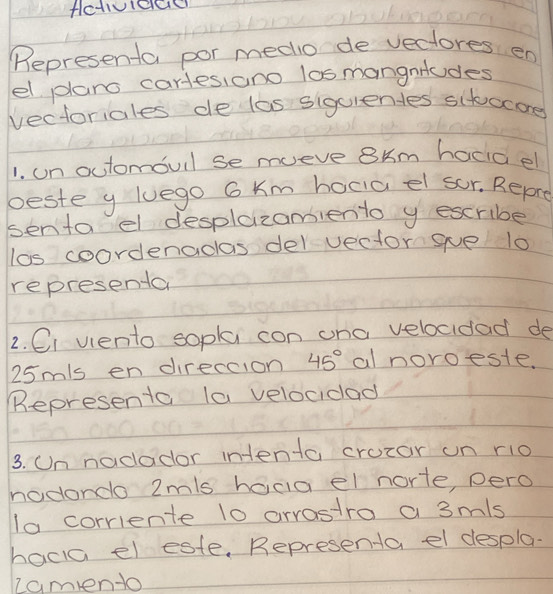 Actividad
Representa por medio de vectores en
el plano cartesiano los mangntudes
vectoriales de las siguientes situacones
1. un automóvil se mueve 8Km hacia el
oeste y luego 6 Km hacia el sur. Repre
senta el desplazamiento y escribe
las coordenadas del vector que lo
representa
2. El viento sopla con una velocidad de
25m/s en direccion 45° al noroeste.
Representa la velocidad
3. Un nadador intenta cruzar un rio
nadando 2m/s hacia el norte, pero
la corriente lo arrastra a 3m/s
hacia el este. Representa el despla-
zamiento